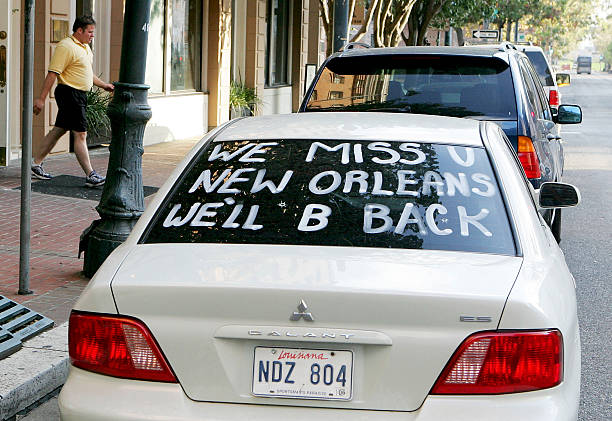 WE MISS U
NEW ORLEANS
WE'LL B BACK
GALANT
ES
Louisiana
NDZ 804
SPORTSMAN'S PARADISE